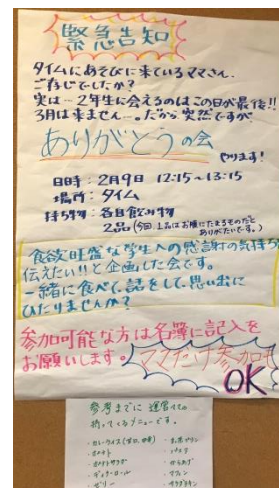 緊急告知
タイムにあそびに来ているママさん、
ご存じでしたか?
実は…2年生に会えるのはこの日が最後!!
3月は来ません…。だから突然ですが
ありがとうの会
やります!
日時:2月9日 12:15~13:15
場所:タイム
持ち物:各自飲み物
2品(今回1品はお腹にたまるものだとありがたいです。)
食欲旺盛な学生への感謝の気持ち
伝えたい!!と企画した会です。
一緒に食べて、話をして、思い出に
ひたりませんか?
参加可能な方は名簿に記入を
お願いします。
ママだけ参加も
OK
参考までに 運営での
持ってくるメニューです。
・カレーライス
・ポテト
・ポテトサラダ
・ゼリー
・からあげ